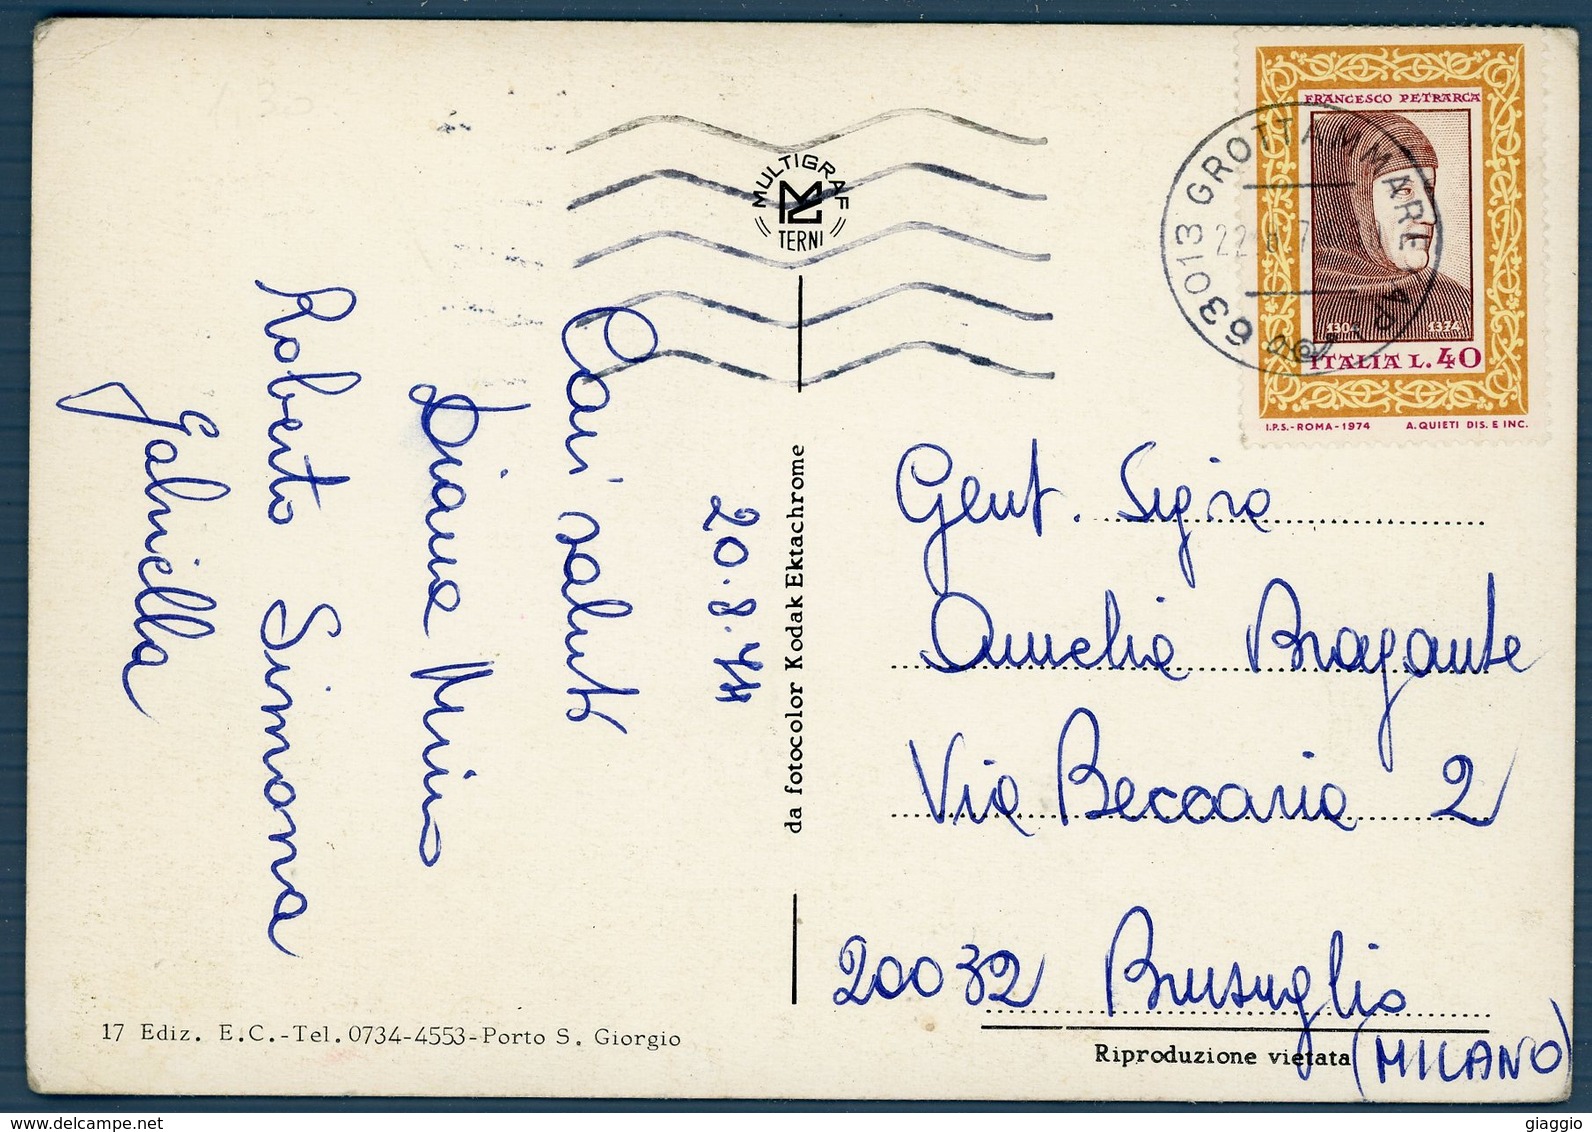 20.8.74
Cari saluti
Diana Mino
Roberto Simona
Gabriella
MULTIGRAF
TERNI
da fotocolor Kodak Ektachrome
17 Ediz. E.C.-Tel. 0734-4553-Porto S. Giorgio
FRANCESCO PETRARCA
1304 1374
ITALIA L. 40
I.P.S.-ROMA-1974 A. QUIETI DIS. E INC.
63013 GROTTAMMARE AP
22. 8. 7
Gent. Sigra
Amelia Bragante
Via Beccaria 2
20032 Brusuglio
(MILANO)
Riproduzione vietata
giaggio
www.delcampe.net